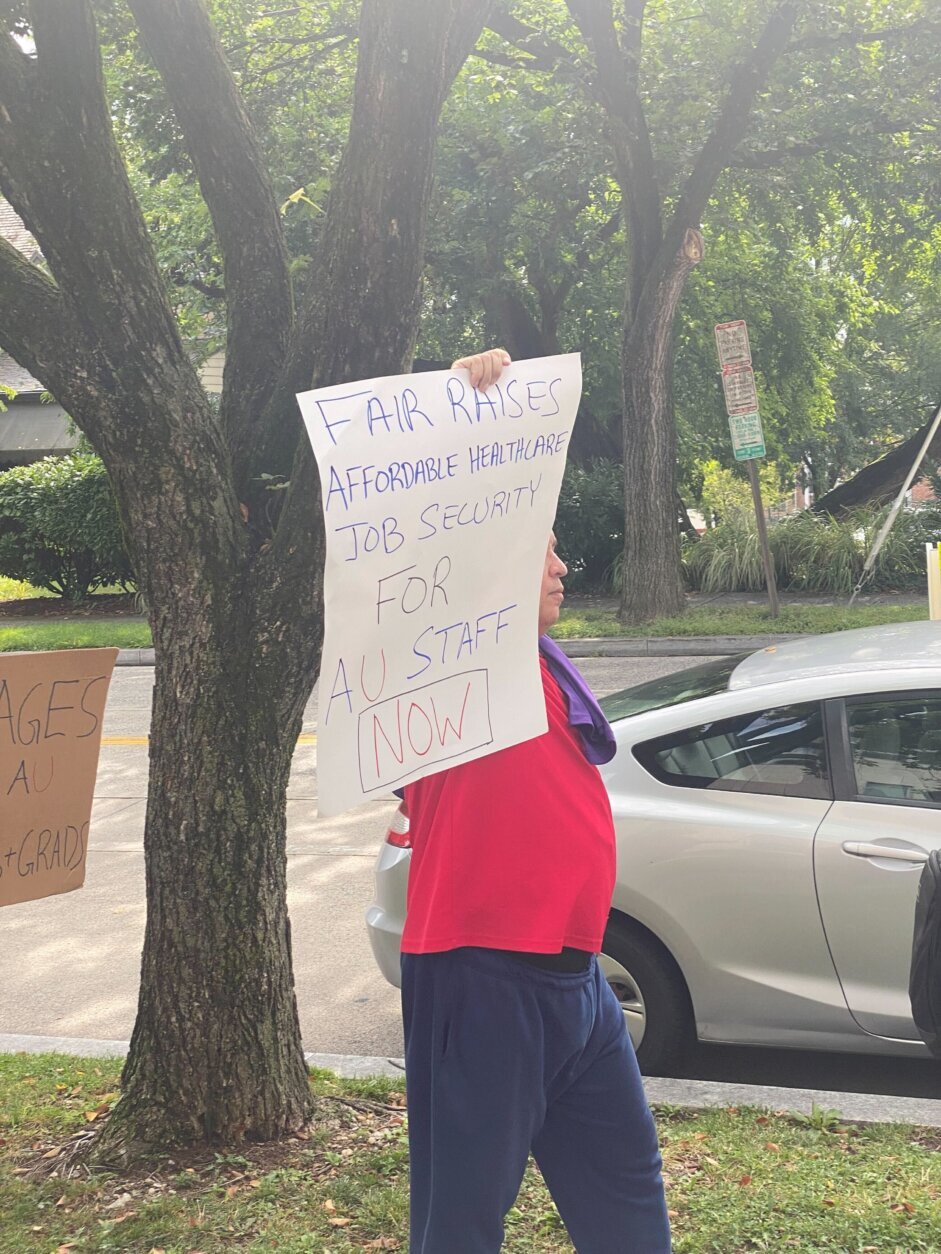 FAIR RAISES
AFFORDABLE HEALTHCARE
JOB SECURITY
FOR
AU STAFF
NOW
AGES
AU
+GRADS